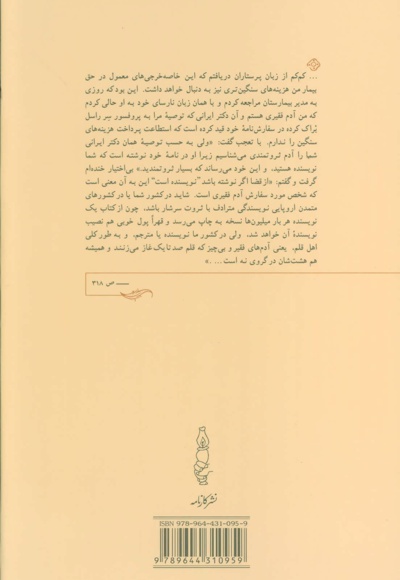 ... کم‌کم از زبان پرستاران دریافتم که این خاصه‌خرجی‌های معمول در حق
بیمار من هزینه‌های سنگین‌تری نیز به دنبال خواهد داشت. این بود که روزی
به مدیر بیمارستان مراجعه کردم و با همان زبان نارسای خود به او حالی کردم
که من آدم فقیری هستم و آن دکتر ایرانی که توصیهٔ مرا به پروفسور سِر راسل
بْراک کرده در سفارش‌نامهٔ خود قید کرده است که استطاعت پرداخت هزینه‌های
سنگین را ندارم. با تعجب گفت: «ولی به حسب توصیهٔ همان دکتر ایرانی
شما را آدم ثروتمندی می‌شناسیم زیرا او در نامهٔ خود نوشته است که شما
نویسنده هستید. و این خود می‌رساند که بسیار ثروتمندید.» بی‌اختیار خنده‌ام
گرفت و گفتم: «از قضا اگر نوشته باشد "نویسنده است" این به آن معنی است
که شخص مورد سفارش آدم فقیری است. شاید در کشور شما یا در کشورهای
متمدن اروپایی نویسندگی مترادف با ثروت سرشار باشد، چون از کتاب یک
نویسنده هر بار میلیون‌ها نسخه به چاپ می‌رسد و قهراً پول خوبی هم نصیب
نویسندهٔ آن خواهد شد، ولی در کشور ما نویسنده یا مترجم، و به طور کلی
اهل قلم، یعنی آدم‌های فقیر و بی‌چیز که قلم صد تا یک غاز می‌زنند و همیشه
هم هشت‌شان در گروی نه است... .»
ص ۳۱۸
نشر کارنامه
ISBN 978-964-431-095-9
9 789644 310959